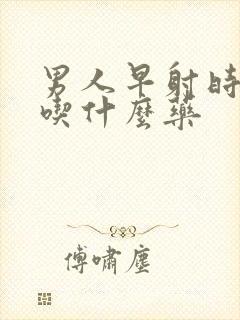 男人早射時
喫什麼藥
傅嘯塵